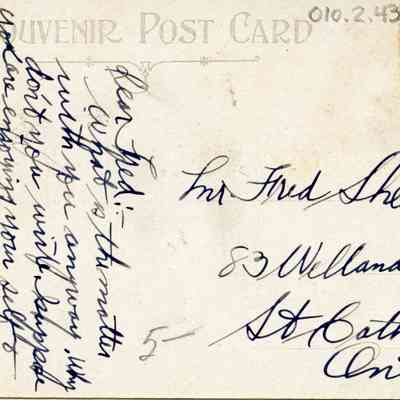 SOUVENIR POST CARD
010.2.43
Dear Fred:-
What is the matter
with you anyway. Why
don't you write. Suppose
you are enjoying your self
5-
Mr Fred She
83 Welland
St Cath
On